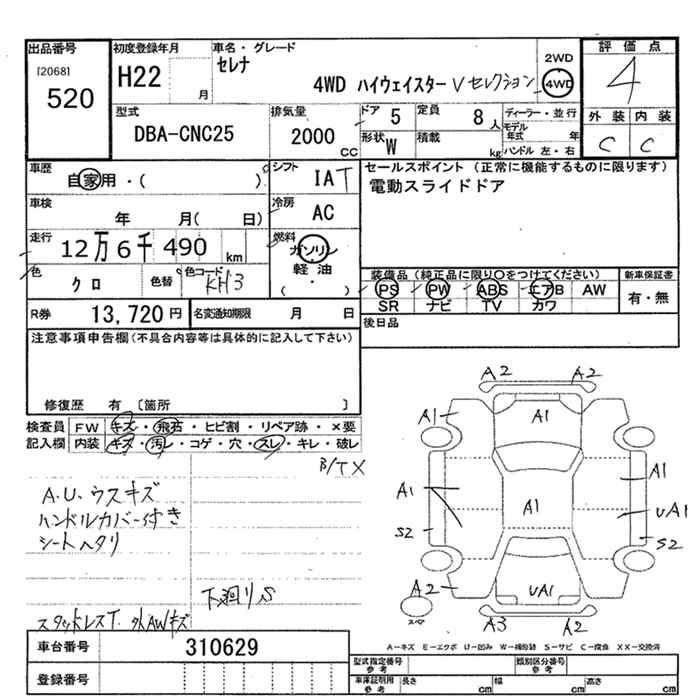 出品番号
[2068]
520
初度登録年月
H22
月
車名・グレード
セレナ
4WD ハイウェイスター Vセレクション
2WD
4WD
評価点
4
外装 内装
C C
型式
DBA-CNC25
排気量
2000
CC
ドア 5
定員 8 人
形状 W
積載 kg
ディーラー・並行
モデル年式 年
ハンドル 左・右
車歴
自家用・( )
シフト
IAT
車検
年 月( 日)
冷房
AC
走行
12万6千490 km
燃料
ガソリン
軽油
( ・ )
色
クロ
色替
色コード
KH3
R券 13,720 円
名変通知期限 月 日
セールスポイント(正常に機能するものに限ります)
電動スライドドア
装備品(純正品に限り〇をつけてください)
PS PW ABS エアB AW
SR ナビ TV カワ
新車保証書
有・無
後日品
注意事項申告欄(不具合内容等は具体的に記入して下さい)
修復歴 有 [箇所 ]
検査員記入欄
FW キズ・飛石・ヒビ割・リペア跡・×要
内装 キズ・汚レ・コゲ・穴・スレ・キレ・破レ
B/TX
A.U.ウスキズ
ハンドルカバー付き
シートヘタリ
下廻りS
スタッドレスT. 外AWキズ
車台番号 310629
登録番号
A2 A2
A1 A1
A1
A1 A1 UA1
S2 S2
A2 UA1
スペア
A3 A2
A-キズ E-エクボ U-凹み W-補修跡 S-サビ C-腐食 XX-交換済
型式指定番号 参考
類別区分番号 参考
車庫証明用 参考
長さ cm 幅 cm 高さ cm